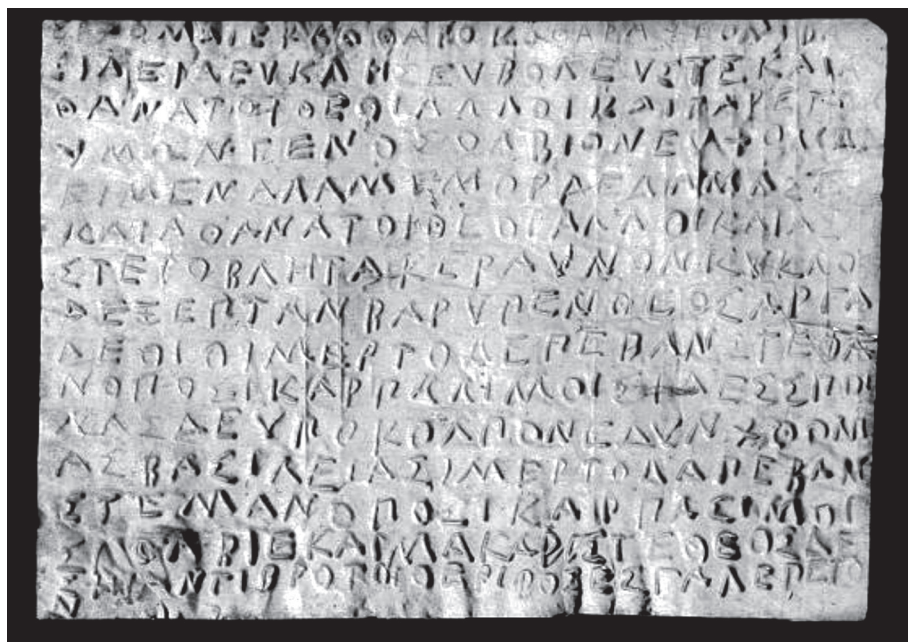 ΕΡΧΟΜΑΙΕΚΚΟΘΑΡΟΚΟΘΑΡΑΧΘΟΝΙΒΑ
ΣΙΛΕΙΑΕΥΚΛΗΣΕΥΒΟΛΕΥΣΤΕΚΑΙΑ
ΘΑΝΑΤΟΙΘΕΟΙΑΛΛΟΙΚΑΙΓΑΡΕΓΟΝ
ΥΜΟΝΓΕΝΟΣΟΛΒΙΟΝΕΥΧΟΜΑΙ
ΕΙΜΕΝΑΛΑΜΕΜΟΡΑΕΔΑΜΑΣΕ
ΚΑΙΑΘΑΝΑΤΟΙΘΕΟΙΑΛΛΟΙΚΑΙΑΣ
ΣΤΕΡΟΒΛΗΤΑΚΕΡΑΥΝΟΝΚΥΚΛΟ
ΔΕΞΕΠΤΑΝΒΑΡΥΠΕΝΘΕΟΣΑΡΓΑ
ΛΕΟΙΟΙΜΕΡΤΟΔΕΠΕΒΑΝΣΤΕΦΑ
ΝΟΠΟΣΙΚΑΡΠΑΛΙΜΟΙΣΙΔΕΣΣΠΟΙ
ΝΑΣΔΕΥΠΟΚΟΛΠΟΝΕΔΥΝΧΘΟΝΙ
ΑΣΒΑΣΙΛΕΙΑΣΙΜΕΡΤΟΔΑΠΕΒΑΝ
ΣΤΕΜΑΝΟΠΟΣΙΚΑΡΠΑΣΙΜΟΙ
ΣΙΟΛΒΙΕΚΑΙΜΑΚΑΡΙΣΤΕΘΕΟΣΔΕ
ΣΗΙΑΝΤΙΒΡΟΤΟΙΟΕΡΙΦΟΣΕΣΓΑΛΕΠΕΤΟ
Ν